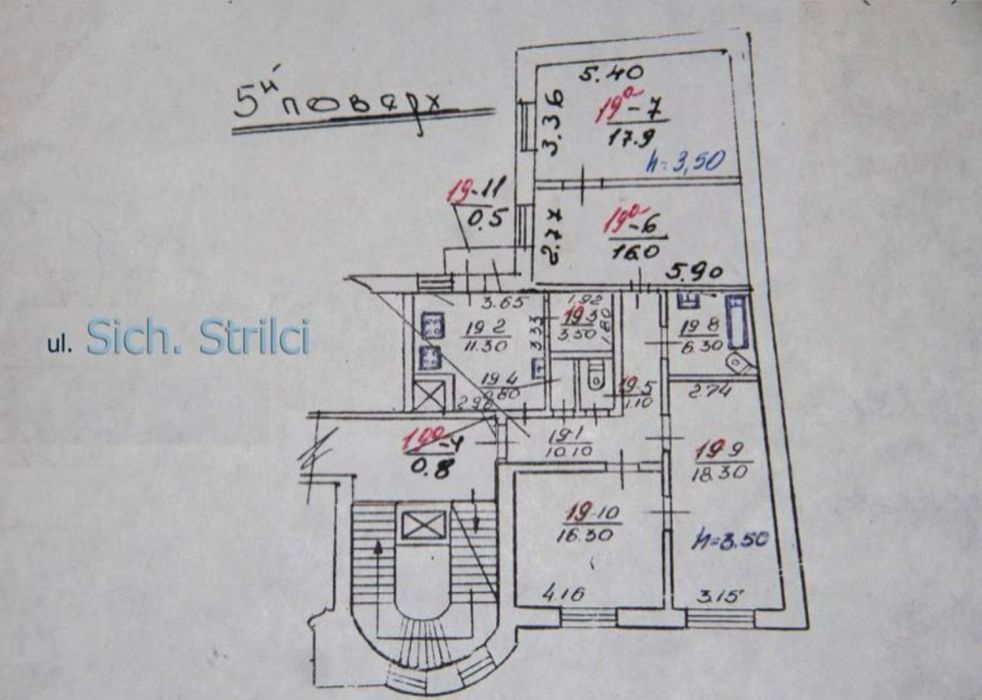 5й поверх
5.40
3.36
19а-7
17.9
h=3,50
19-11
0.5
2.77
19а-6
16.0
5.90
ul. Sich. Strilci
3.65
19 2
11.30
3.33
1.92
19 3
3.50
1.80
19 8
6.30
19 4
0.80
2.98
19-5
1.10
2.74
-4
0.8
19-1
10.10
19 9
18.30
h=3.50
19-10
16.30
4.16
3.15